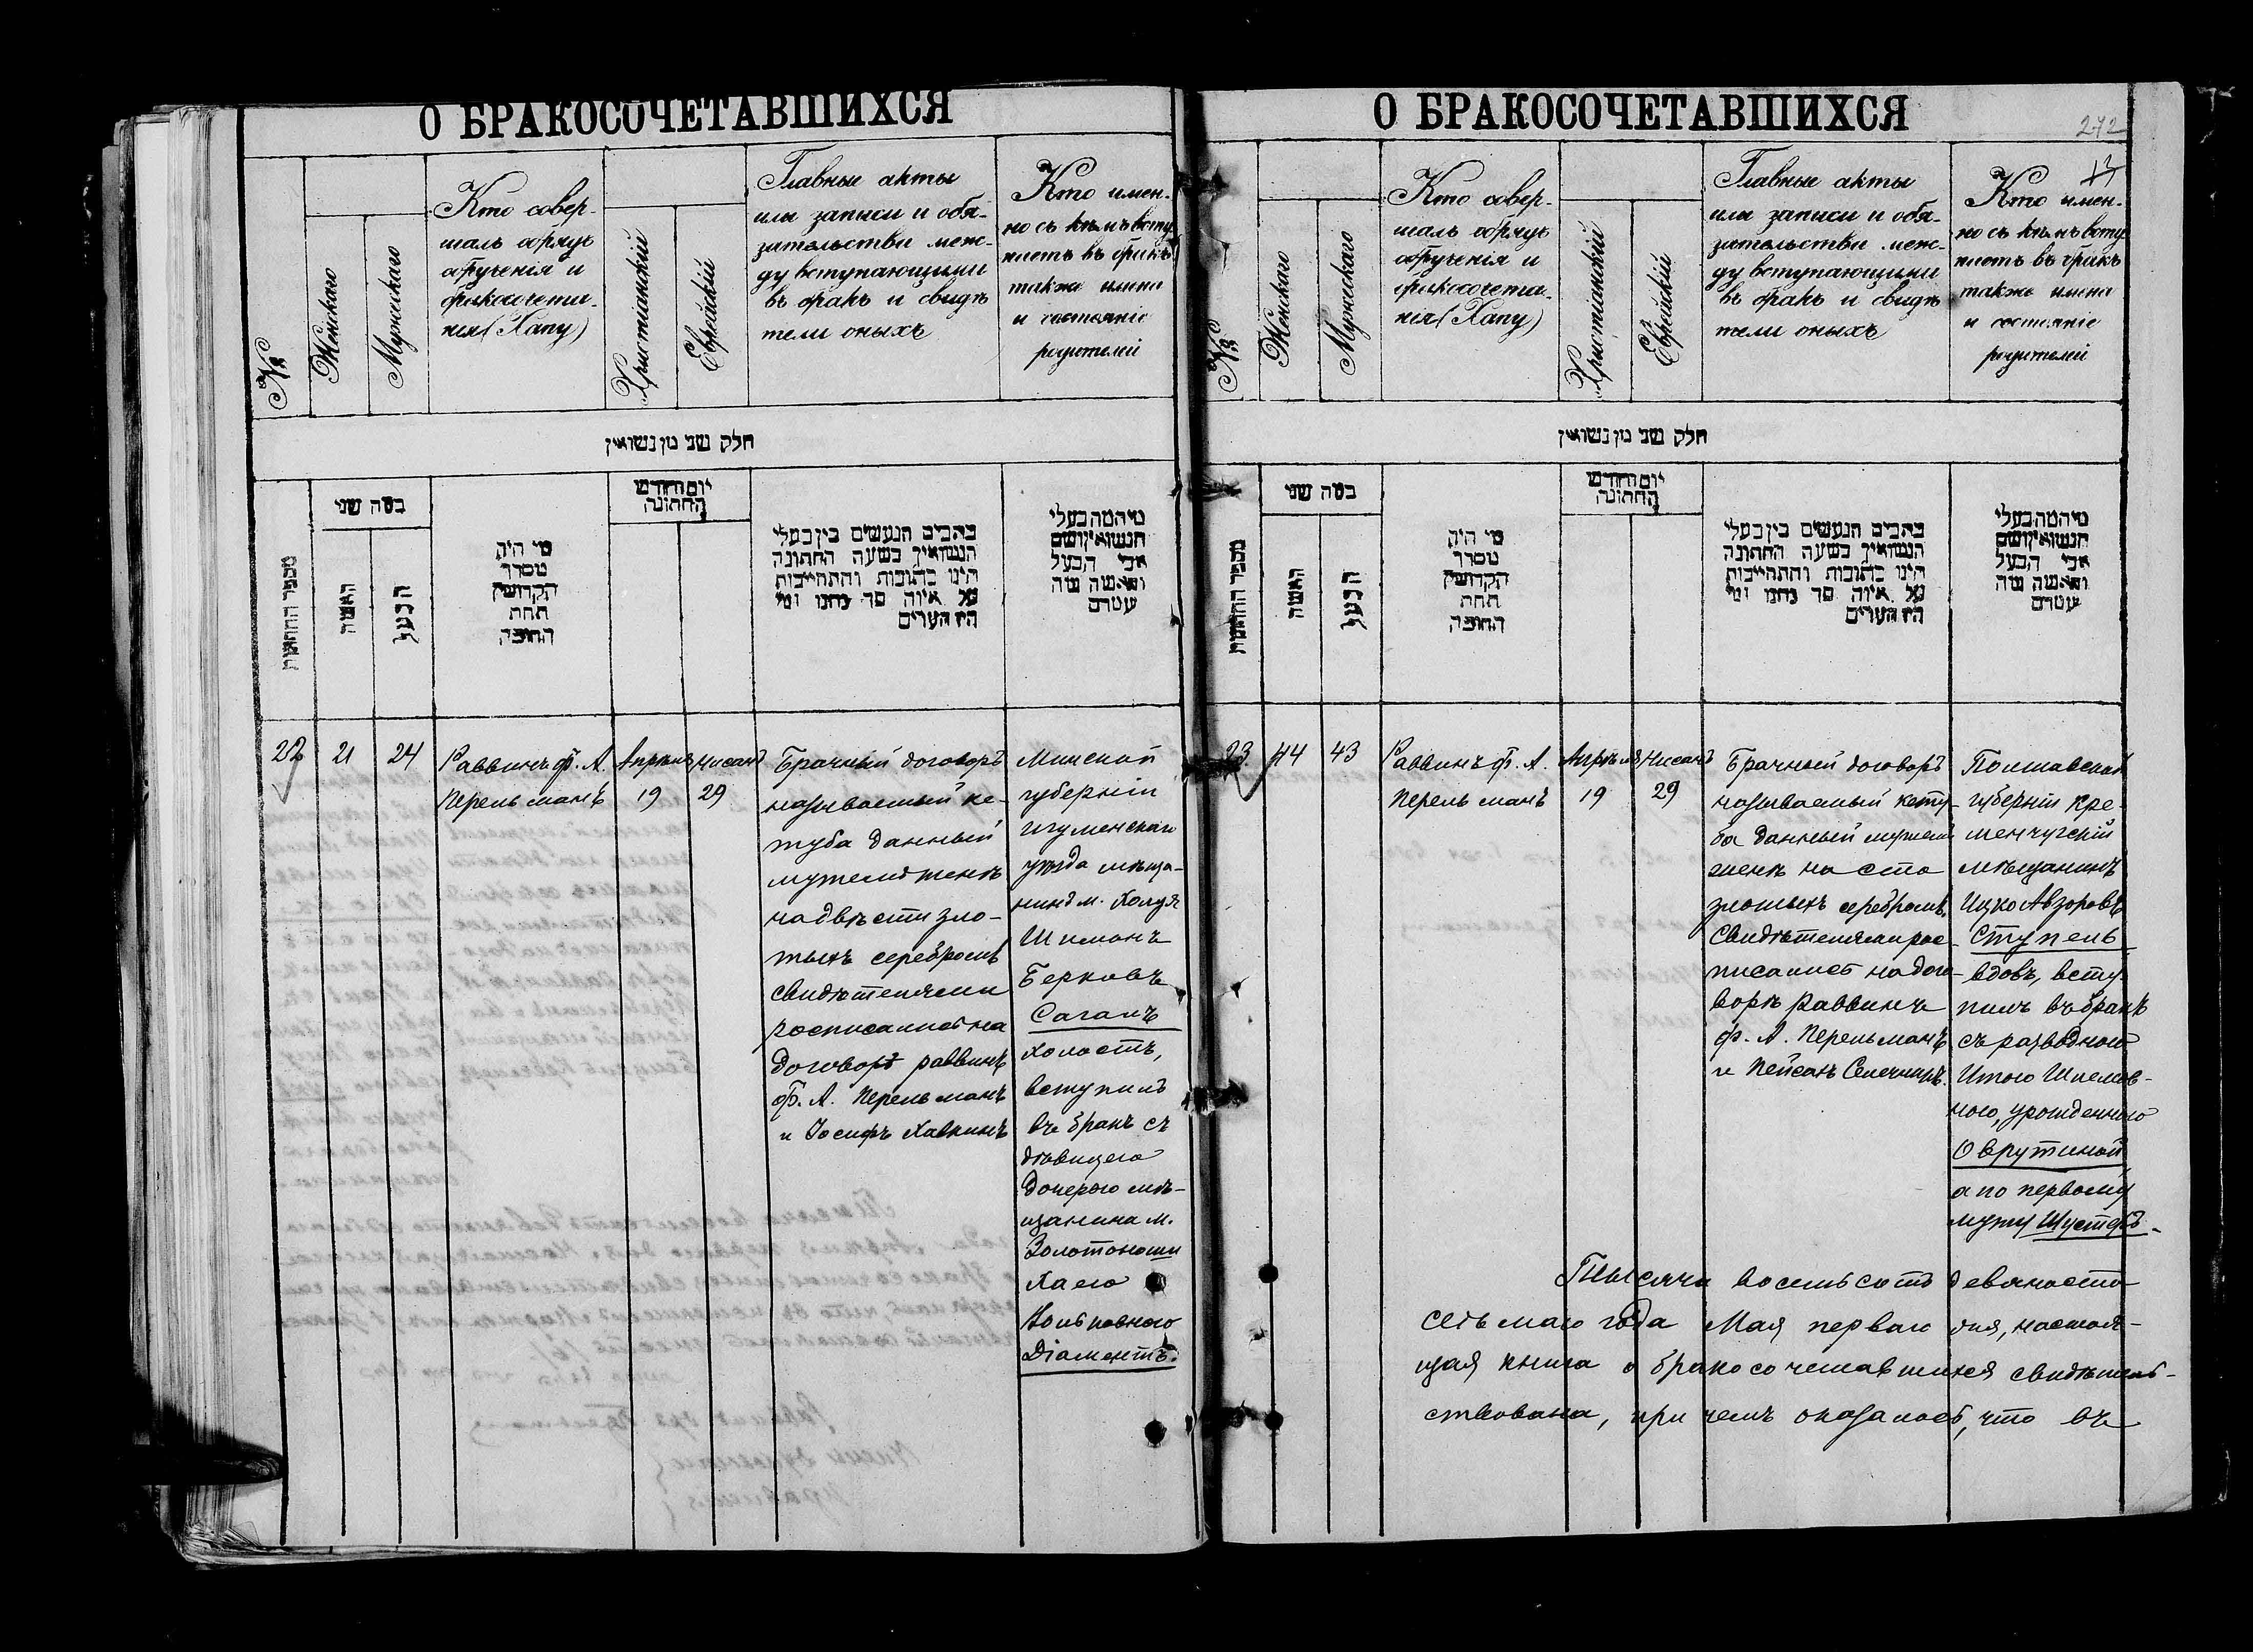 О БРАКОСОЧЕТАВШИХСЯ
№
Женскаго
Мужескаго
Кто совер-
шалъ обрядъ
обрученія и
бракосочета-
нія (Хапу)
Христіанскій
Еврейскій
Главные акты
или записи и обя-
зательства меж-
ду вступающими
въ бракъ и свидѣ
тели оныхъ
Кто имен-
но съ кѣмъ всту
паетъ въ бракъ
также имена
и состояніе
родителей
חלק שני מן נשואין
מספר החתונות
במה שני
האשה
הבעל
מי היה
מסדר
הקדושין
תחת
החופה
יום וחודש
החתונה
כתבים הנעשים בין בעלי
הנשואין בשעה החתונה
היינו כתובות והתחייבות
על איזה סך נתנו ומי
היו העדים
מי המה בעלי
הנשואין ושם
אבי הבעל
והאשה
22
21
24
Раввинъ ф. А.
Перельманъ
Апрѣль
19
Нисанъ
29
Брачный договоръ
называемый ке-
туба данный
мужемъ женѣ
на двѣсти зло-
тыхъ серебромъ
свидѣтелями
росписались на
договорѣ раввинъ
Ф. А. Перельманъ
и Іосифъ Хавкинъ
Минской
губерніи
Игуменскаго
уѣзда мѣща-
нинъ м. Холуя
Шимонъ
Берковъ
Саганъ
холостъ,
вступилъ
въ бракъ съ
дѣвицею
дочерью мѣ-
щанина м.
Золотоноши
Хаею
Нольповною
Діамантъ.
О БРАКОСОЧЕТАВШИХСЯ
272
17
№
Женскаго
Мужескаго
Кто совер-
шалъ обрядъ
обрученія и
бракосочета-
нія (Хапу)
Христіанскій
Еврейскій
Главные акты
или записи и обя-
зательства меж-
ду вступающими
въ бракъ и свидѣ
тели оныхъ
Кто имен-
но съ кѣмъ всту
паетъ въ бракъ
также имена
и состояніе
родителей
חלק שני מן נשואין
מספר החתונות
במה שני
האשה
הבעל
מי היה
מסדר
הקדושין
תחת
החופה
יום וחודש
החתונה
כתבים הנעשים בין בעלי
הנשואין בשעה החתונה
היינו כתובות והתחייבות
על איזה סך נתנו ומי
היו העדים
מי המה בעלי
הנשואין ושם
אבי הבעל
והאשה
23
44
43
Раввинъ ф. А.
Перельманъ
Апрѣля
19
Нисанъ
29
Брачный договоръ
называемый кету-
ба данный мужемъ
женѣ на сто
злотыхъ серебромъ,
Свидѣтелями рос-
писались на дого-
ворѣ раввинъ
ф. А. Перельманъ
и Пейсахъ Селечникъ.
Полтавской
губерніи Кре-
менчугскій
мѣщанинъ
Ицко Авзоровъ
Ступель
вдовъ, всту-
пилъ въ бракъ
съ разводною
Итою Шлемов-
ною, урожденною
Оврутиной
а по первому
мужу Шустеръ.
Тысяча восемьсотъ девяносто
седьмаго года Мая перваго дня, настоя-
щая книга о бракосочетавшихся свидѣтель-
ствована, при чемъ оказалось, что въ